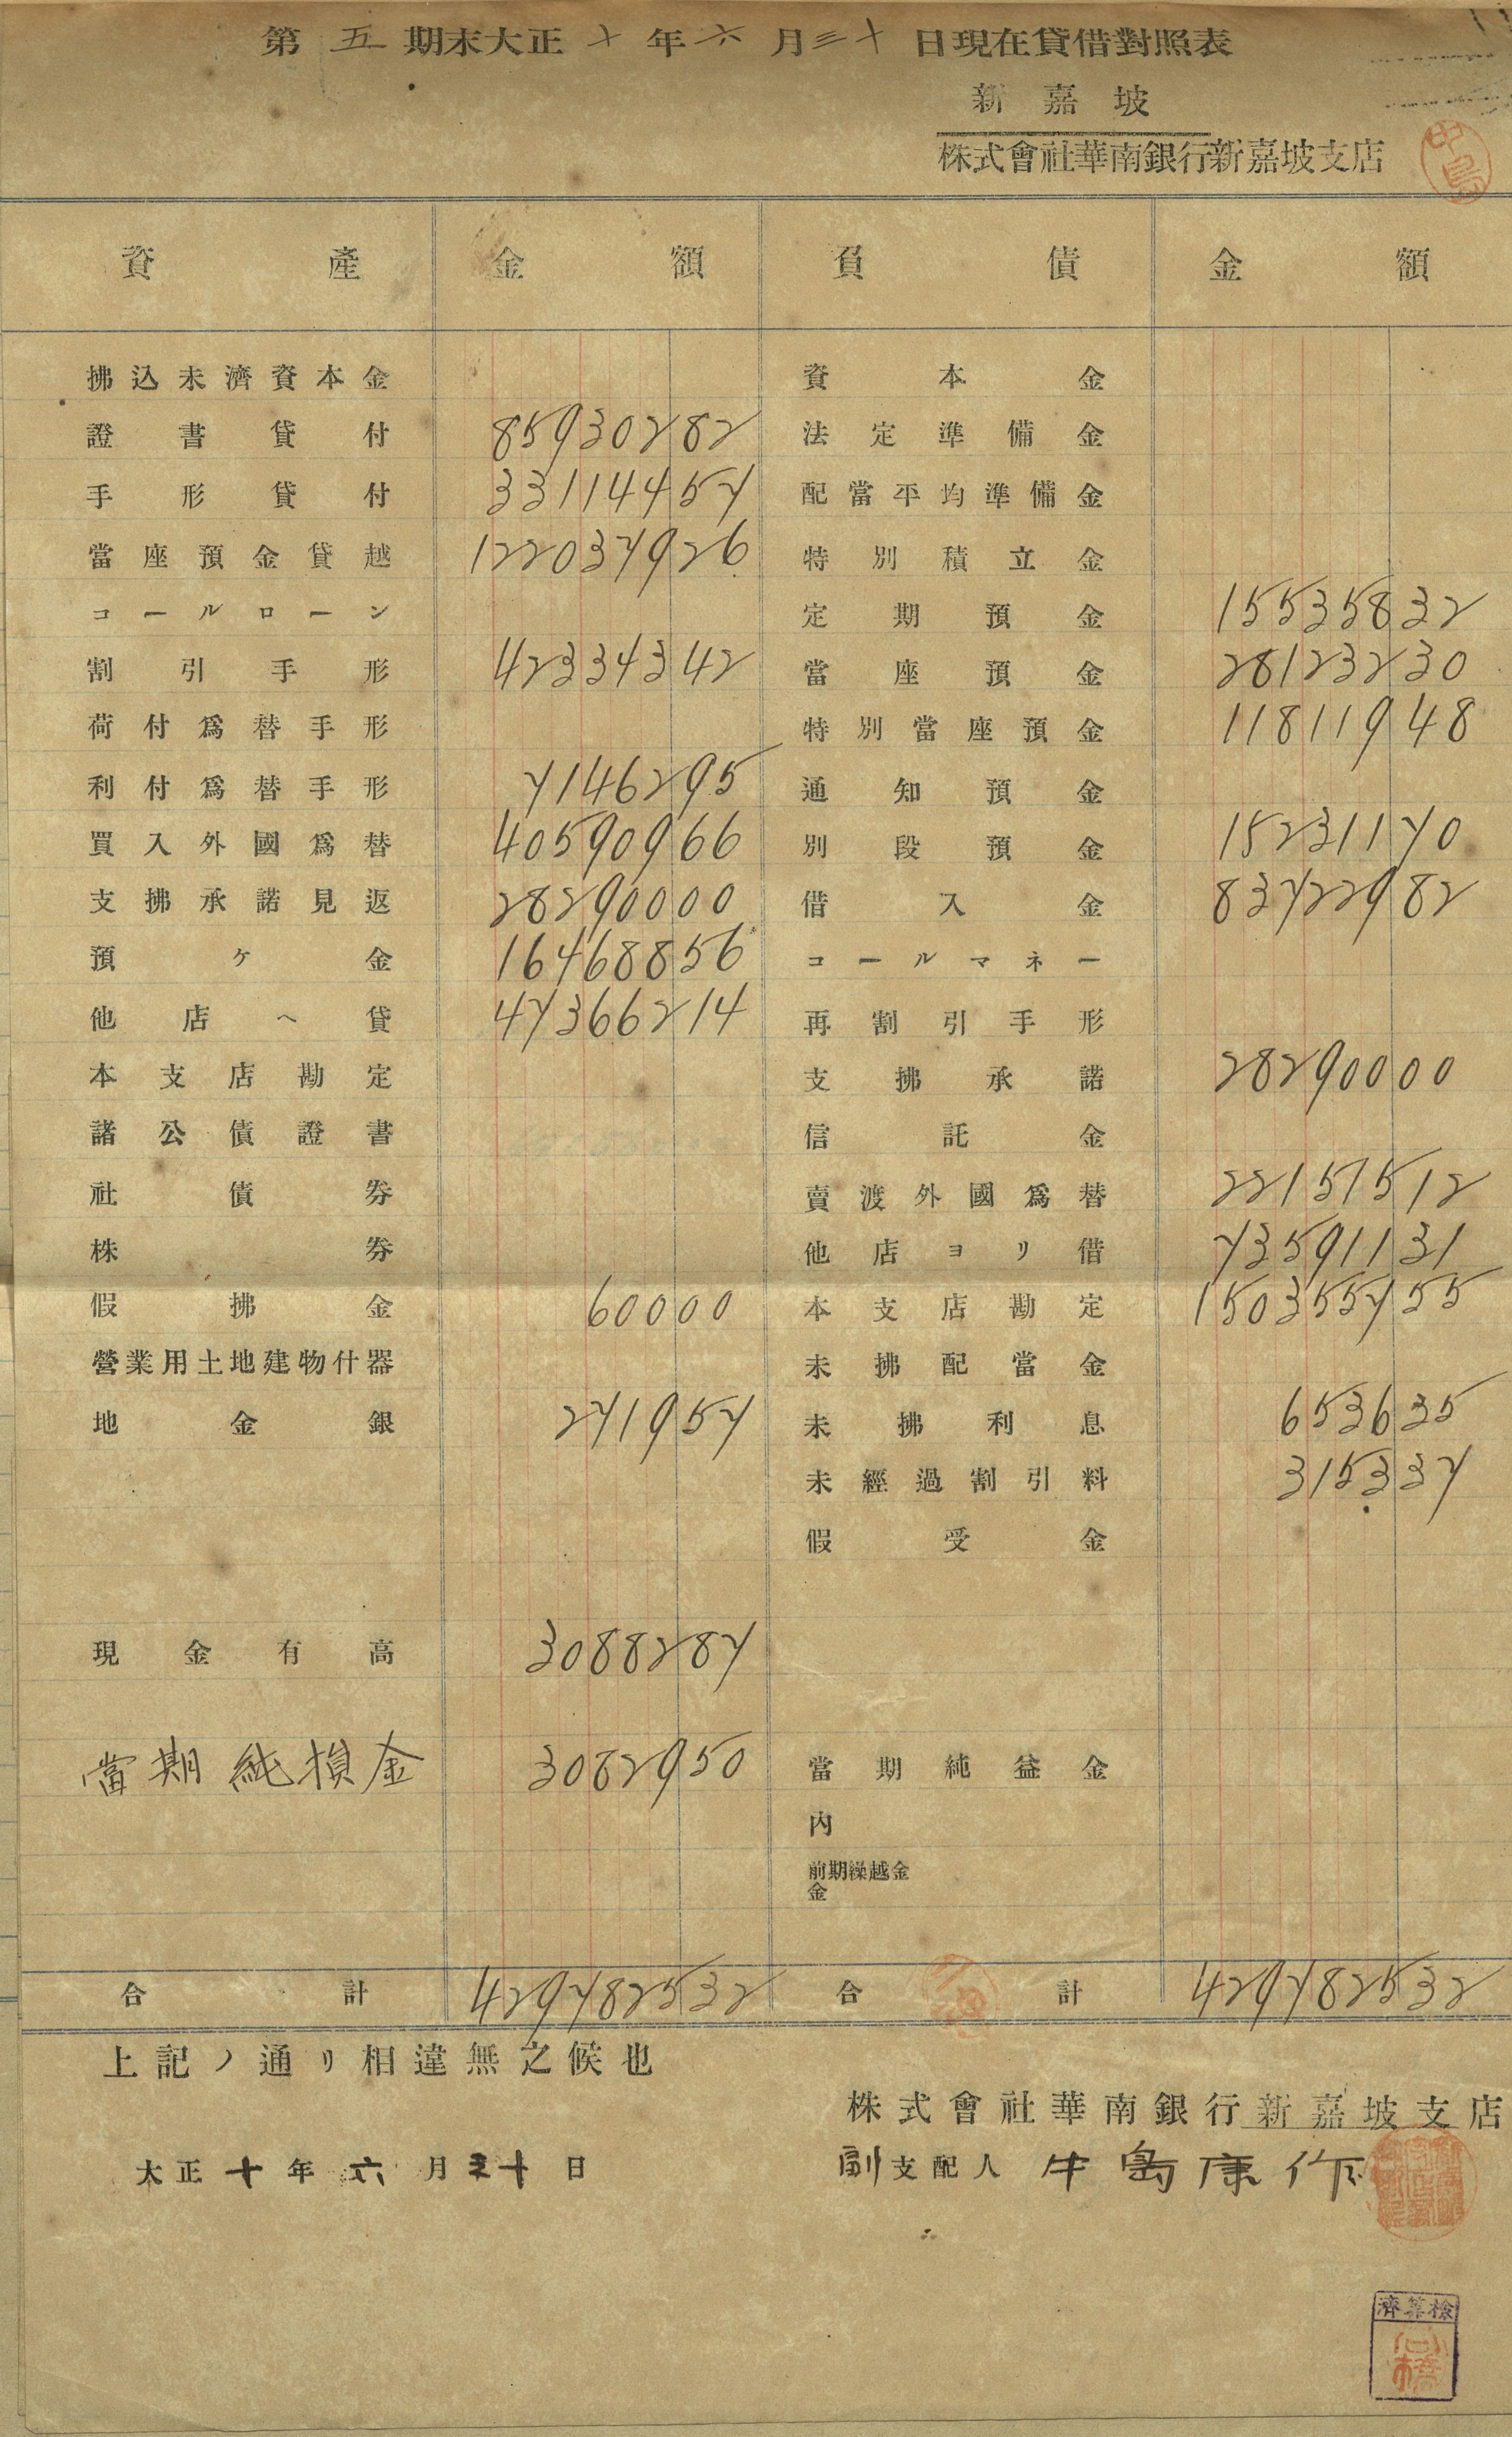 第五期末大正十年六月三十日現在貸借對照表
新嘉坡
株式會社華南銀行新嘉坡支店
中島
資產 金額 負債 金額
拂込未濟資本金 資本金
證書貸付 85930282 法定準備金
手形貸付 33114457 配當平均準備金
當座預金貸越 122037926 特別積立金
コールローン 定期預金 15535832
割引手形 42334342 當座預金 28123230
荷付爲替手形 特別當座預金 11811948
利付爲替手形 7146295 通知預金
買入外國爲替 40590966 別段預金 15231170
支拂承諾見返 28290000 借入金 83722982
預ケ金 16468856 コールマネー
他店ヘ貸 47366214 再割引手形
本支店勘定 支拂承諾 28290000
諸公債證書 信託金
社債券 賣渡外國爲替 22151512
株券 他店ヨリ借 73591131
假拂金 60000 本支店勘定 150355755
營業用土地建物什器 未拂配當金
地金銀 271957 未拂利息 653635
未經過割引料 315337
假受金
現金有高 3088287
當期純損金 3082950 當期純益金
內
前期繰越金
金
合計 429782532 合計 429782532
上記ノ通リ相違無之候也
株式會社華南銀行新嘉坡支店
大正十年六月三十日 副支配人 牛島康作
檢算濟